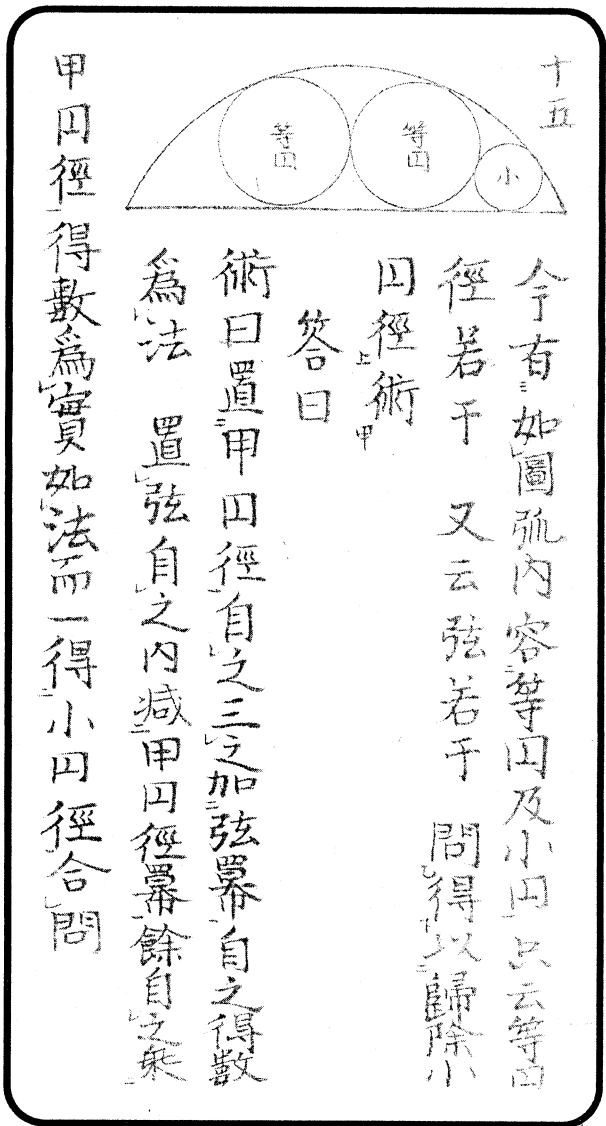 十五
等円
等円
小
今有如圖弧内容等円及小円只云等円
徑若干 又云弦若干 問得以歸除小
円徑術
答曰
術曰置甲円徑自之三之加弦羃自之得数
爲法 置弦自之内減甲円徑羃餘自之乘
甲円徑得數爲實如法而一得小円徑合問